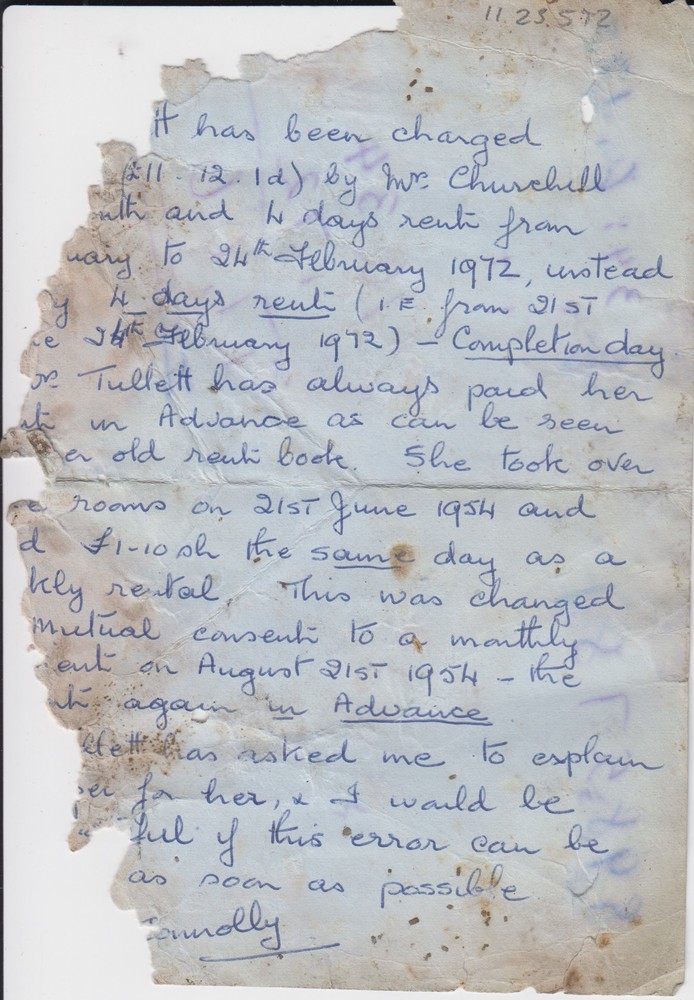 11.23.572
It has been charged
(£11 . 12 . 1d) by Mr. Churchill
nth and 4 days rent from
uary to 24th February 1972, instead
y 4 days rent (I.E. from 21ST
e 24th February 1972) – Completion day.
rs. Tullett has always paid her
nt in Advance as can be seen
er old rent book. She took over
e rooms on 21ST June 1954 and
d £1-10sh the same day as a
kly rental. This was changed
mutual consent to a monthly
ent on August 21ST 1954 – the
nt again in Advance
llett has asked me to explain
for her, & I would be
ful if this error can be
as soon as possible.
Connolly